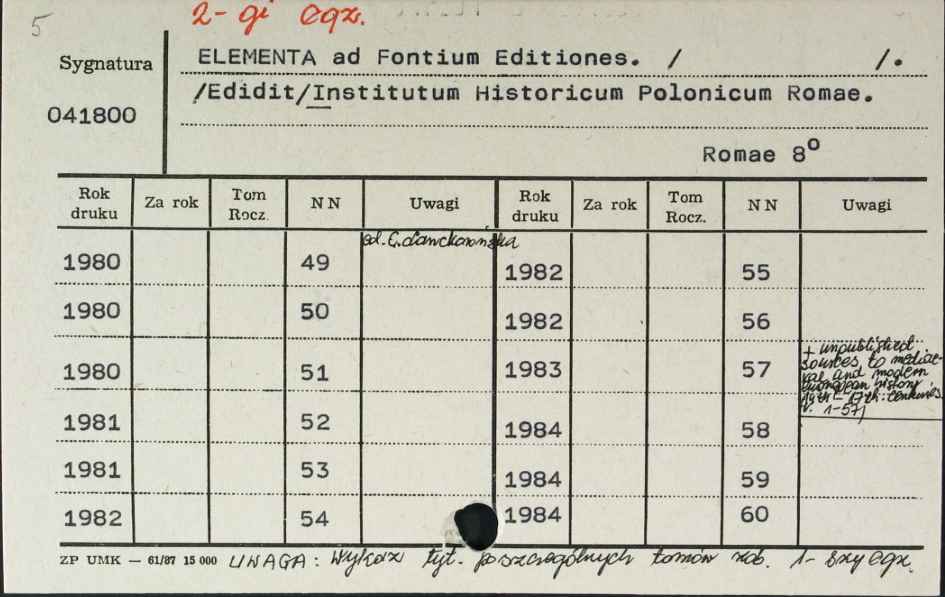 5
2-gi egz.
Sygnatura
041800
ELEMENTA ad Fontium Editiones. / /.
/Edidit/Institutum Historicum Polonicum Romae.
Romae 8o
Rok druku Za rok Tom Rocz. NN Uwagi Rok druku Za rok Tom Rocz. NN Uwagi
ed. C. Lanckorońska
1980 49 1982 55
1980 50 1982 56
1980 51 1983 57
+ unpublished
sources to mediae-
val and modern
european history
17th centuries.
v. 1-57/
1981 52 1984 58
1981 53 1984 59
1982 54 1984 60
ZP UMK — 61/87 15 000 UWAGA: Wykaz tyt. poszczególnych tomów zob. 1-szy egz.